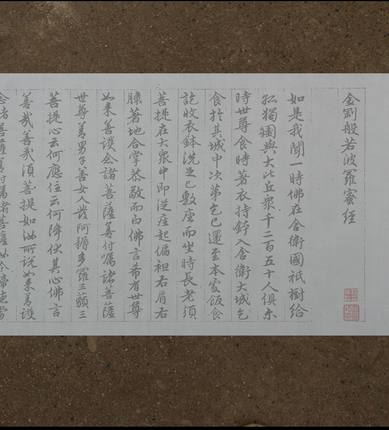 金剛般若波羅蜜經
如是我聞一時佛在舍衛國祇樹給
孤獨園與大比丘眾千二百五十人俱尒
時世尊食時著衣持鉢入舍衛大城乞
食於其城中次第乞已還至本處飯食
訖收衣鉢洗足已敷座而坐時長老須
菩提在大眾中即從座起偏袒右肩右
膝著地合掌恭敬而白佛言希有世尊
如來善護念諸菩薩善付囑諸菩薩
世尊善男子善女人發阿耨多羅三藐三
菩提心云何應住云何降伏其心佛言
善哉善哉須菩提如汝所說如來善護
念諸菩薩善付囑諸菩薩汝今諦聽當